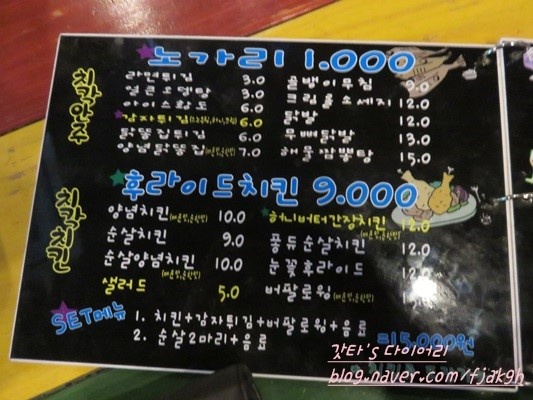 노가리 1.000
칰칰안주
라면튀김 3.0
얼큰오뎅탕 3.0
아이스황도 6.0
감자튀김 6.0
닭똥집튀김 6.0
양념닭똥집 7.0
골뱅이무침 9.0
크림홀소세지 12.0
닭발 12.0
무뼈닭발 13.0
해물짬뽕탕 15.0
후라이드치킨 9.000
칰칰치킨
양념치킨 10.0
순살치킨 9.0
순살양념치킨 10.0
샐러드 5.0
허니버터간장치킨 12.0
퐁듀순살치킨 12.0
눈꽃후라이드 12.0
버팔로윙
SET메뉴
1. 치킨+감자튀김+버팔로윙+음료
2. 순살2마리+음료
=15,000원
갓타's 다이어리
blog.naver.com/fjdk9h